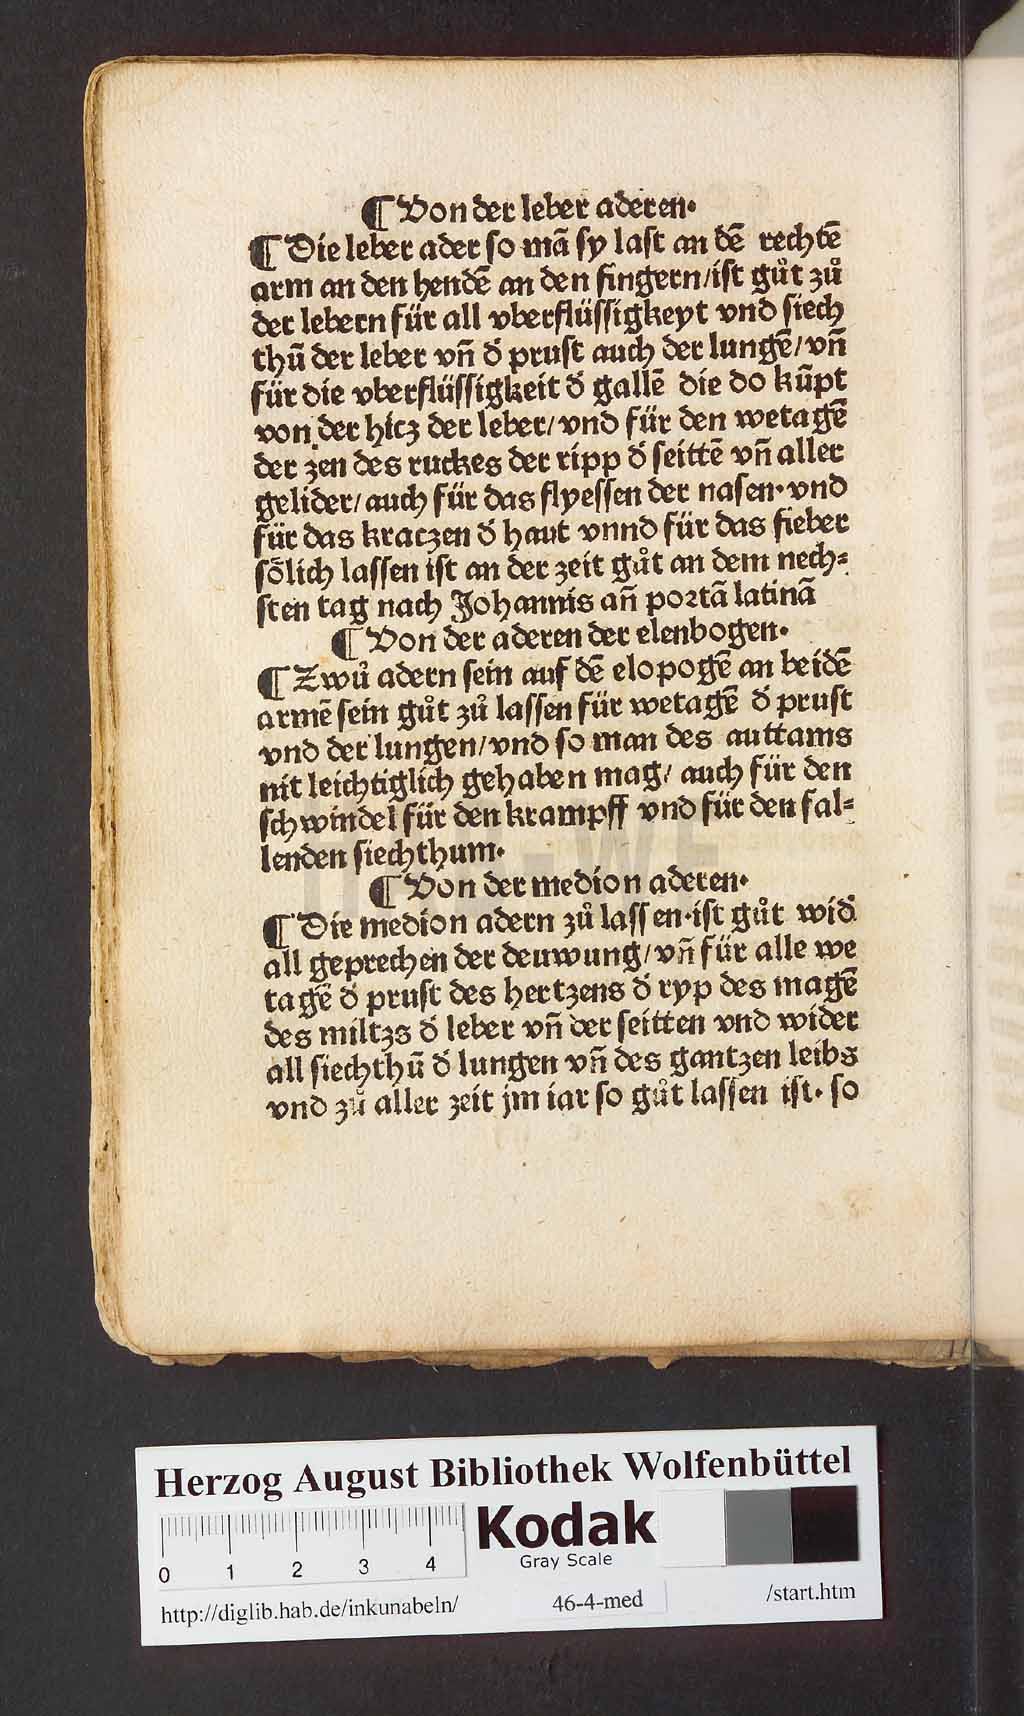 ¶ Von der leber aderen·
¶ Die leber ader so mā sy last an dē rechtē
arm an den hendē an den fingern/ist gůt zů
der lebern für all vberflüssigkeyt vnd siech
thū der leber vn̄ d̕ prust auch der lungē/vn̄
für die vberflüssigkeit d̕ gallē die do kūpt
von der hicz der leber/vnd für den wetagē
der zen des ruckes der ripp d̕ seittē vn̄ aller
gelider/auch für das flyessen der nasen·vnd
für das kraczen d̕ haut vnnd für das fieber
sölich lassen ist an der zeit gůt an dem nech⸗
sten tag nach Johannis an̄ portā latinā
¶ Von der aderen der elenbogen·
¶ Zwů adern sein auf dē elopogē an beidē
armē sein gůt zů lassen für wetagē d̕ prust
vnd der lungen/vnd so man des auttams
nit leichtiglich gehaben mag/ auch für den
schwindel für den krampff vnd für den fal⸗
lenden siechthum·
¶ Von der medion aderen·
¶ Die medion adern zů lassen·ist gůt wid̕
all geprechen der deuwung/vn̄ für alle we
tagē d̕ prust des hertzens d̕ ryp des magē
des miltzs d̕ leber vn̄ der seitten vnd wider
all siechthū d̕ lungen vn̄ des gantzen leibs
vnd zů aller zeit jm iar so gůt lassen ist· so
Herzog August Bibliothek Wolfenbüttel
Kodak
Gray Scale
0 1 2 3 4
http://diglib.hab.de/inkunabeln/ 46-4-med /start.htm